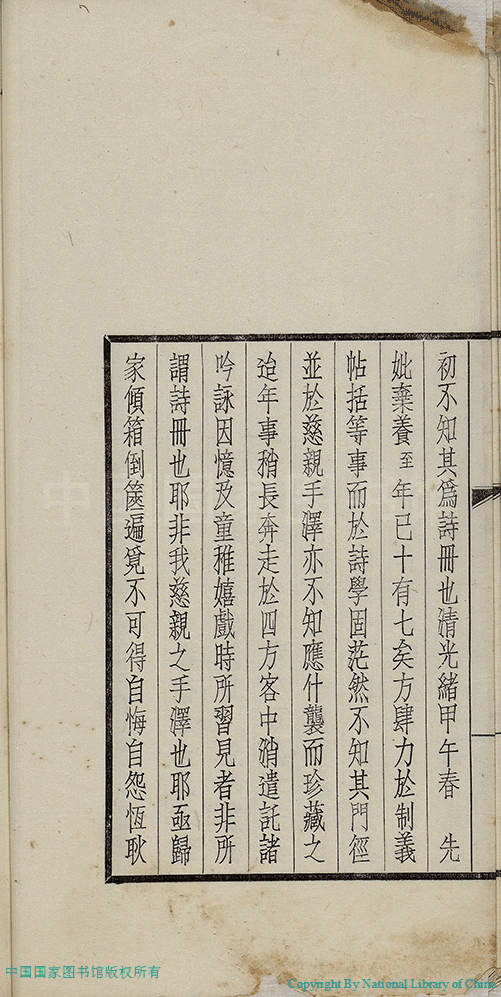 初不知其爲詩冊也清光緒甲午春　先
妣棄養至年已十有七矣方肆力於制義
帖括等事而於詩學固茫然不知其門徑
並於慈親手澤亦不知應什襲而珍藏之
迨年事稍長奔走於四方客中消遣託諸
吟詠因憶及童稚嬉戲時所習見者非所
謂詩冊也耶非我慈親之手澤也耶亟歸
家傾箱倒篋遍覓不可得自悔自怨恆耿
中国国家图书馆版权所有
Copyright By National Library of China